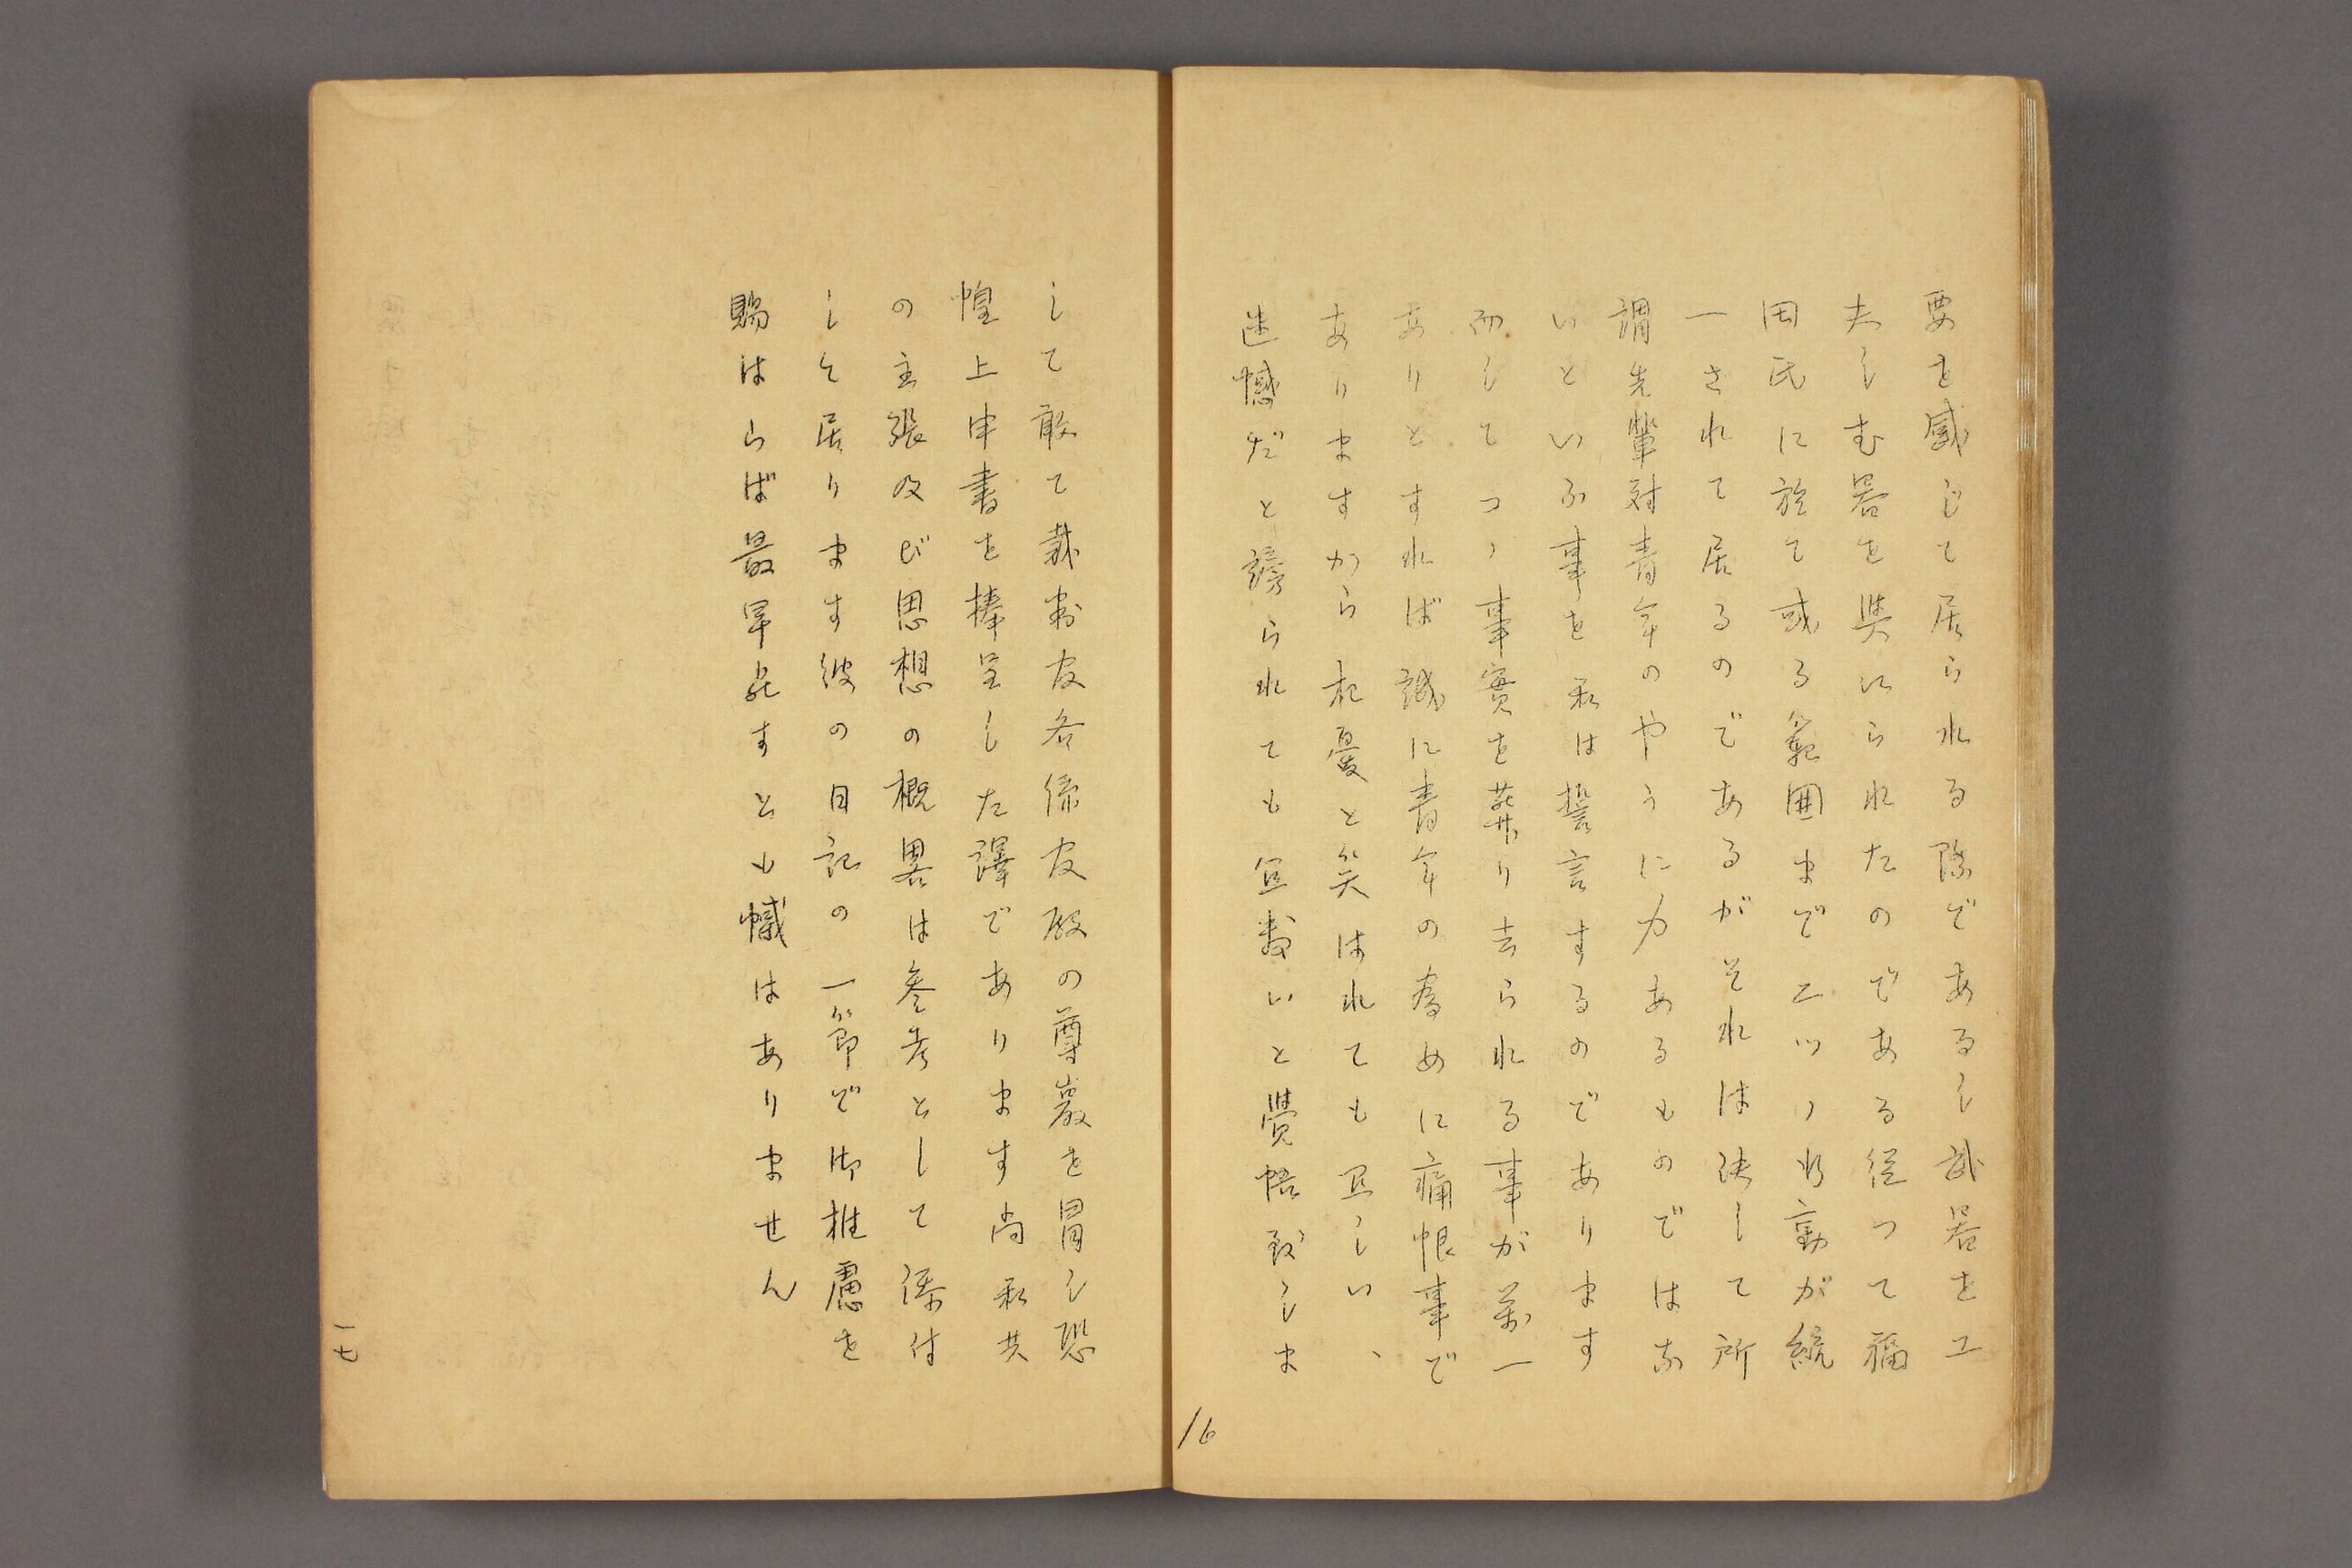 要を感じて居られる際であるし武器を工
夫しむ器を與へられたのである従つて福
田氏に於て或る範囲まで二ツノ行動が統
一されて居るのであるがそれは決して所
謂先輩対青年のやうに力あるものではな
いといふ事を私は誓言するのであります
而してつノ事實を葬り去られる事が萬一
ありとすれば誠に青年の為めに痛恨事で
ありますから杞憂と笑はれても宜しい、
迷惑だと謗られても宜敷いと覺悟致しま
16
して敢て裁判官各係官殿の尊厳を冒し恐
惶上申書を捧呈した譯であります尚私共
の主張及び思想の概畧は参考として添付
して居ります彼の日記の一節で御推慮を
賜はらば最早死すとも憾はありません
一七